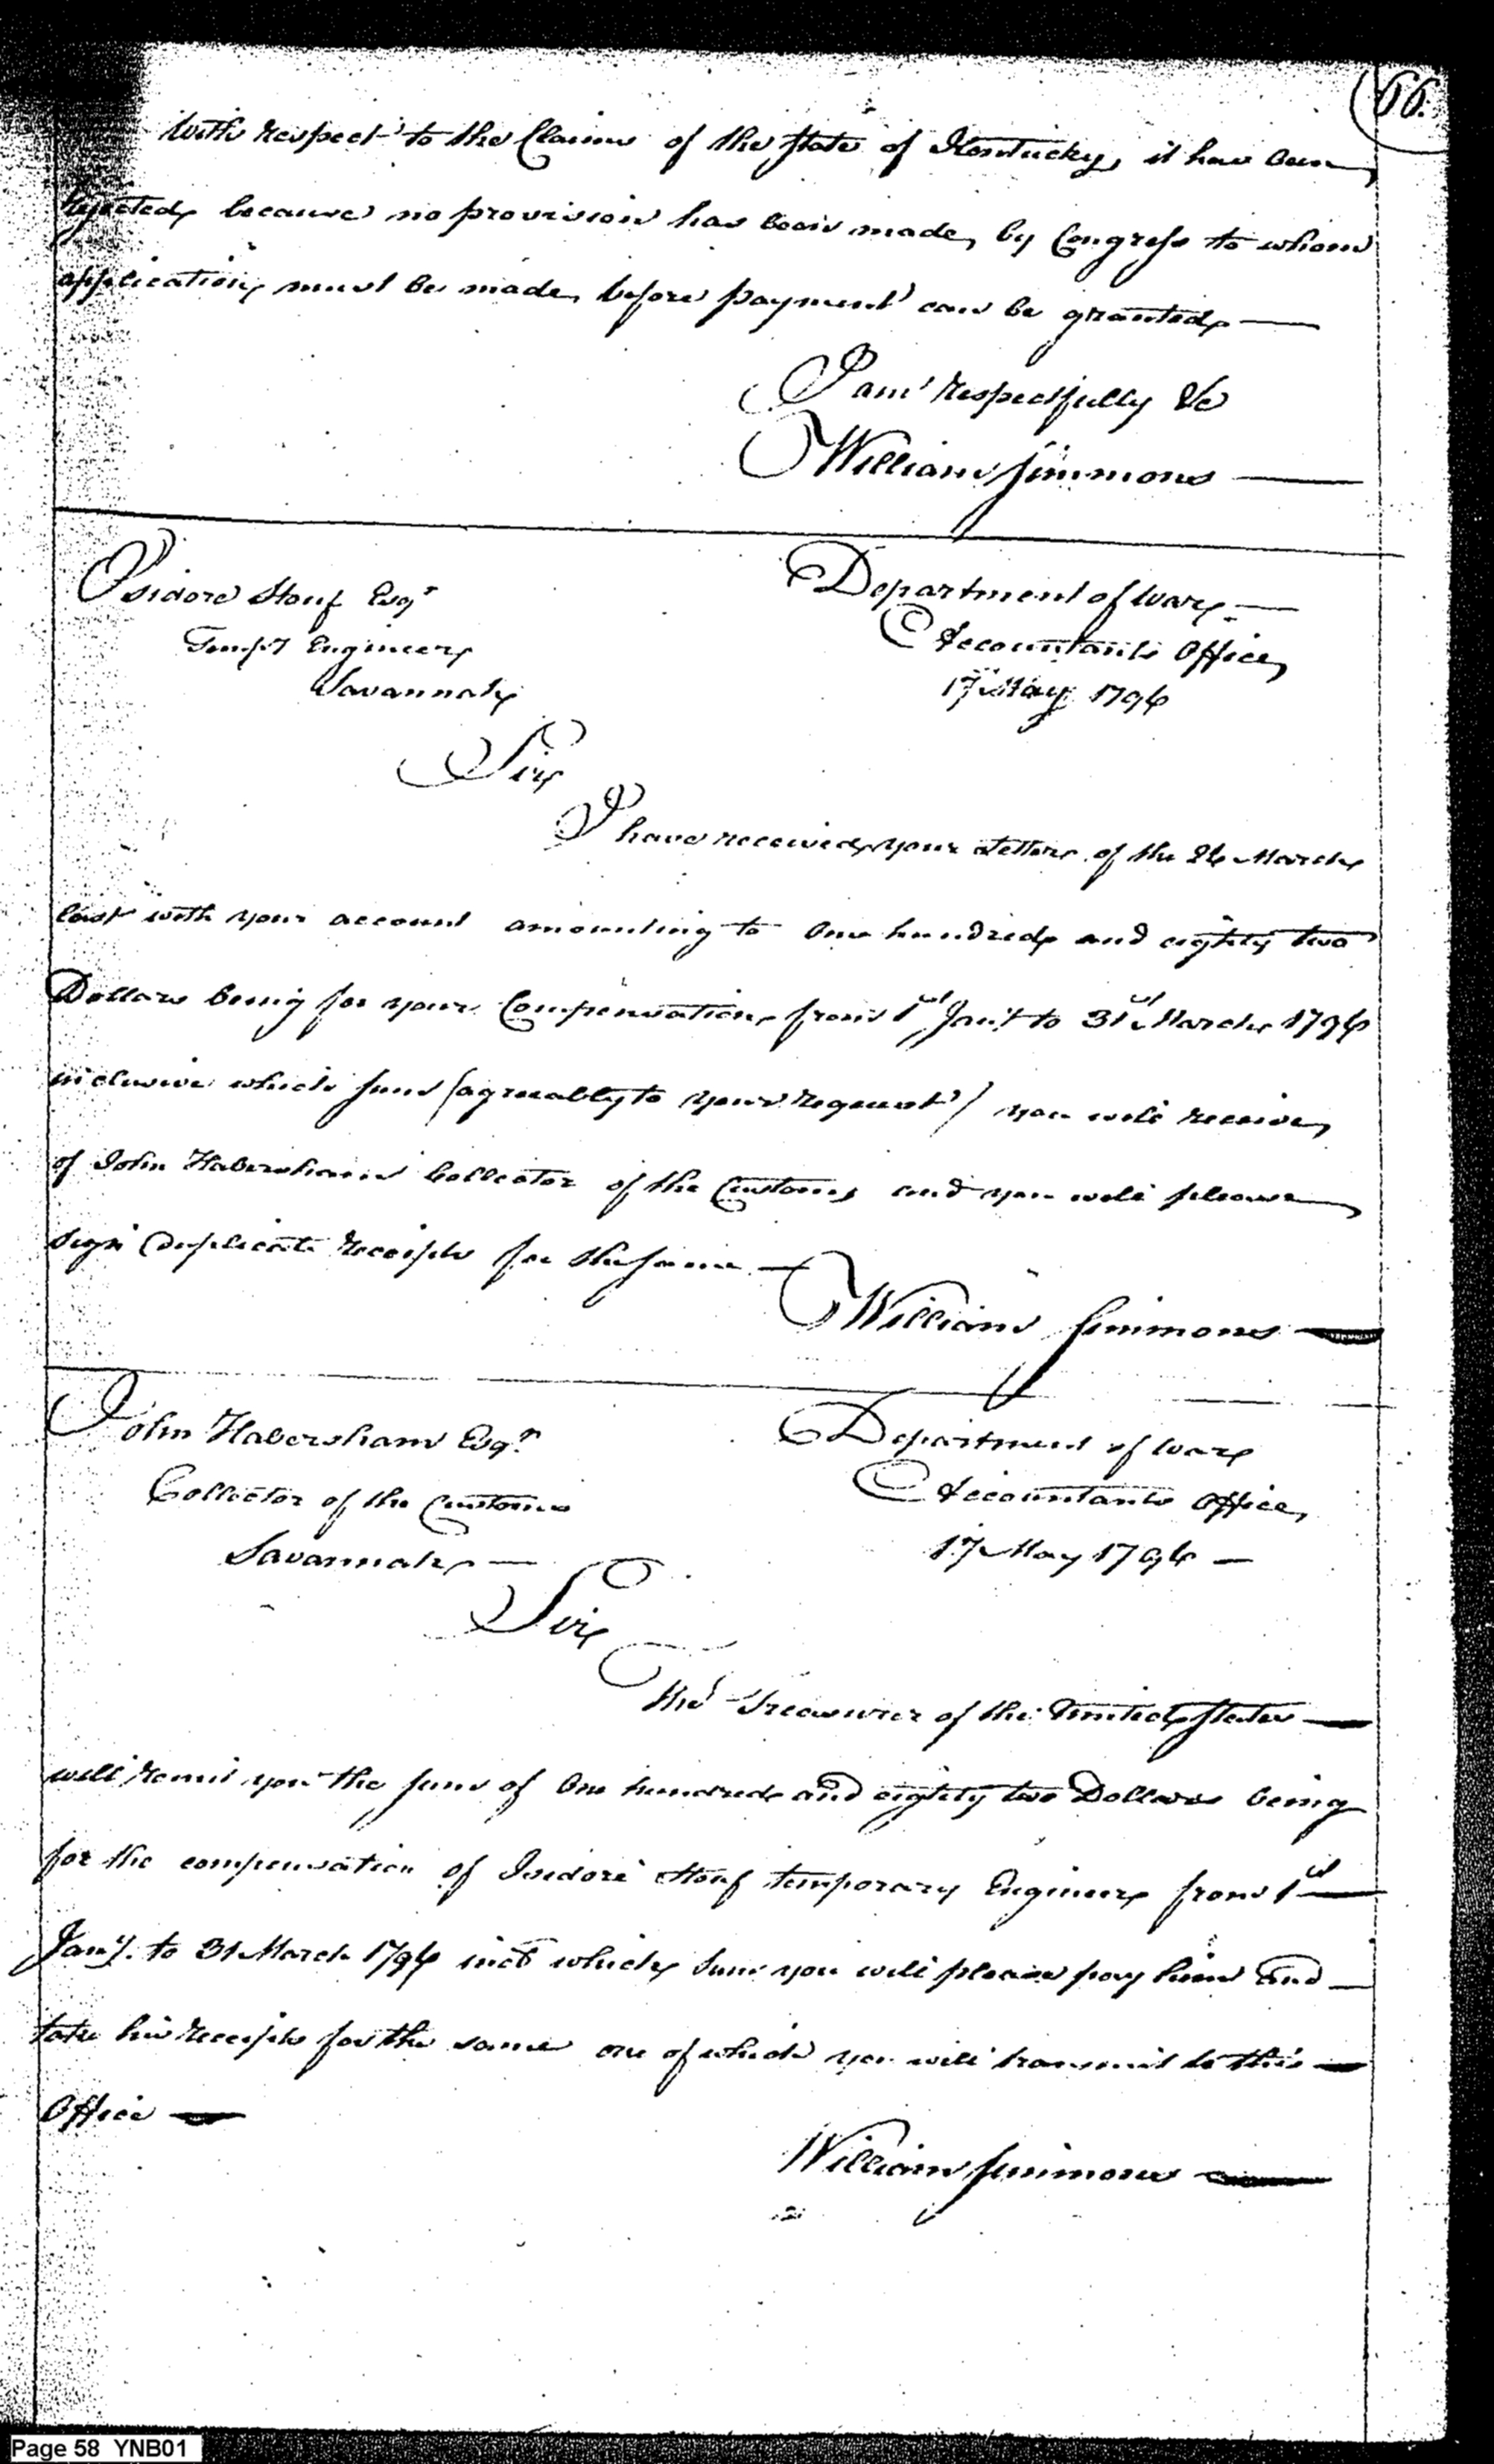 66.
With respect to the Claims of the State of Kentucky, it has been
rejected, because no provision has been made, by Congress to whom
application, must be made, before payment can be granted —
I am respectfully &c
William Simmons —
Isidore Stouf Esqr
Temp'y Engineer
Savannah
Department of War, —
Accountants Office,
17 May 1796
Sir
I have received your Letter of the 26 March
last with your account amounting to One hundred and eighty two
Dollars being for your Compensation, from 1st Jany to 31st March 1796
inclusive which sum (agreeably to your request) you will receive,
of John Habersham Collector of the Customs and you will please
sign Duplicate receipts for the same. —
William Simmons —
John Habersham Esqr.
Collector of the Customs
Savannah —
Department of War
Accountants Office,
17 May 1796 —
Sir
The Treasurer of the United States —
will remit you the sum of One hundred and eighty two Dollars being
for the compensation of Isidore Stouf temporary Engineer from 1st —
Jany. to 31 March 1796 incl which sum you will please pay him and —
take his receipts for the same one of which you will transmit to this —
Office —
William Simmons —
Page 58 YNB01